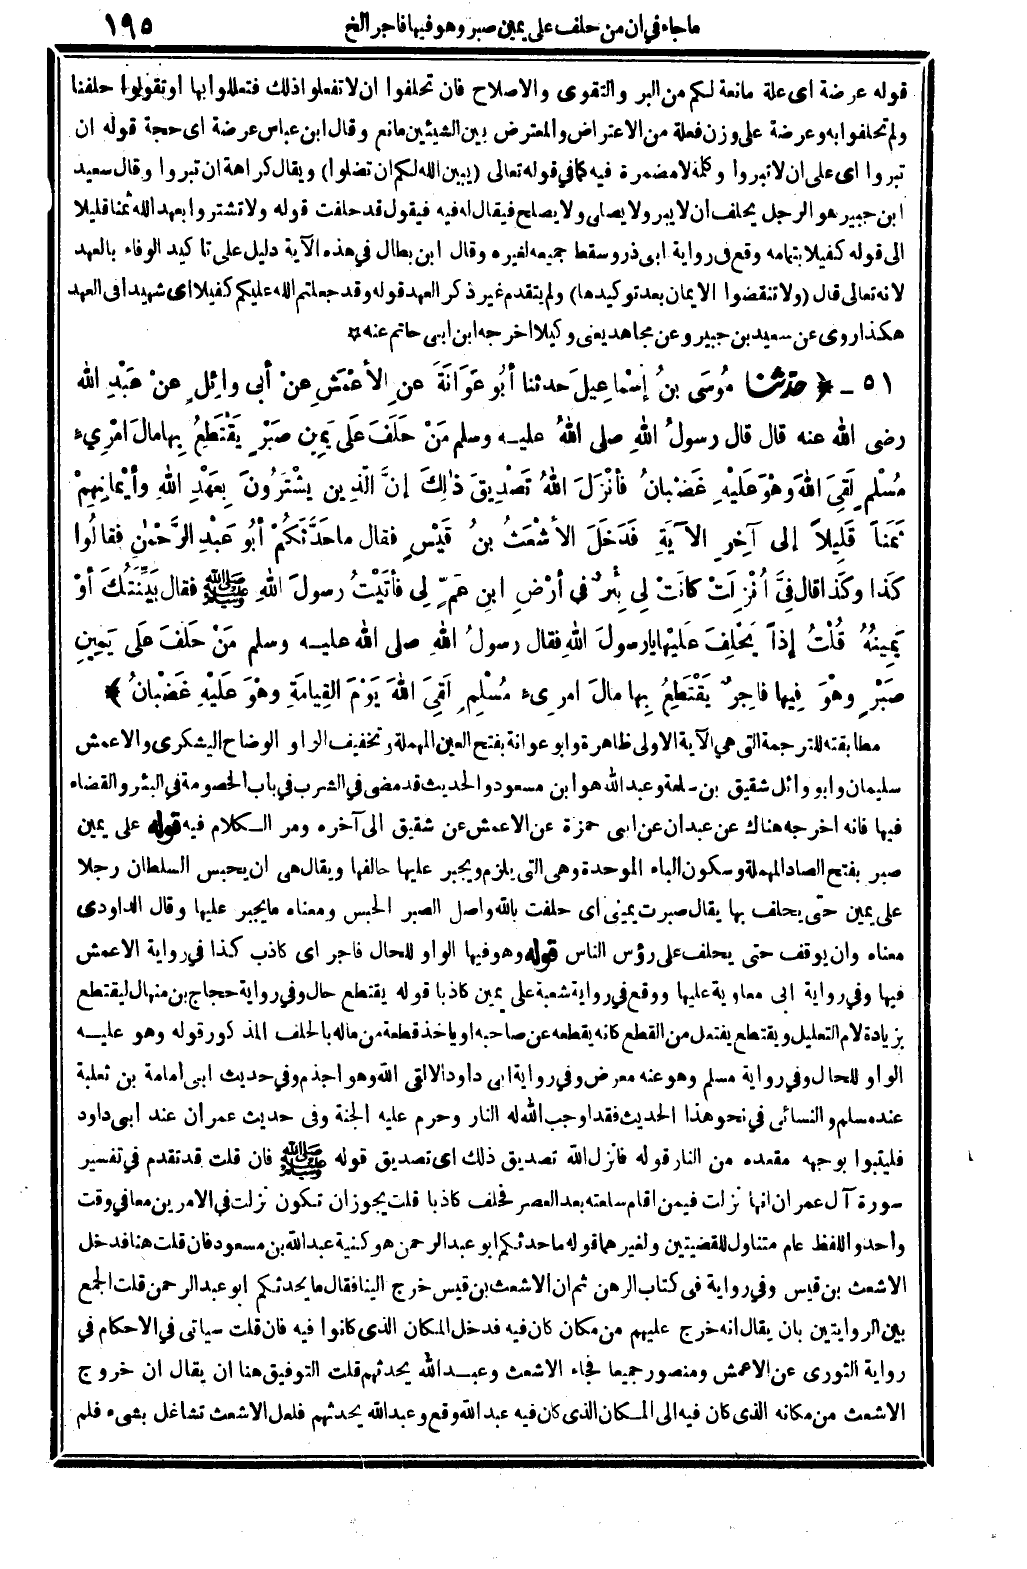 ما جاء في ان من حلف على يمين صبر وهو فيها فاجر الخ
١٩٥
قوله عرضة اى علة مانعة لكم من البر والتقوى والاصلاح فان تحلفوا ان لا تفعلوا ذلك فتعللوا بها او تقولوا حلفنا
ولم تحلفوا به وعرضة على وزن فعلة من الاعتراض والمعترض بين الشيئين مانع وقال ابن عباس عرضة اى حجة قوله ان
تبروا اى على ان لا تبروا وكلمة لا مضمرة فيه كما في قوله تعالى (يبين الله لكم ان تضلوا) ويقال كراهة ان تبروا وقال سعيد
ابن جبير هو الرجل يحلف أن لا يبر ولا يصلى ولا يصلح فيقال له فيه فيقول قد حلفت قوله ولا تشتروا بعهد الله ثمنا قليلا
الى قوله كفيلا بتمامه وقع فى رواية ابى ذر وسقط جميعه لغيره وقال ابن بطال في هذه الآية دليل على تاكيد الوفاء بالعهد
لانه تعالى قال (ولا تنقضوا الايمان بعد توكيدها) ولم يتقدم غير ذكر العهد قوله وقد جعلتم الله عليكم كفيلا اى شهيدا فى العهد
هكذا روى عن سعيد بن جبير وعن مجاهد يعني وكيلا اخرجه ابن ابى حاتم عنه ☆
٥١ - ﴿ حدثنا مُوسَى بنُ إسْماعِيلَ حدثنا أبُو عَوَانَةَ عنِ الأعْمَشِ عنْ أبى وائِلٍ عنْ عَبْدِ اللهِ
رضى الله عنه قال قال رسولُ اللهِ صلى اللهُ عليه وسلم مَنْ حَلَفَ عَلَى يَمِينِ صَبْرٍ يَقْتَطِعُ بِها مالَ امْرِىءٍ
مُسْلِمٍ لَقِىَ اللهَ وهْوَ عَلَيْهِ غَضْبانُ فأنْزَلَ اللهُ تَصْدِيقَ ذٰلِكَ إنَّ الَّذِينَ يشْتَرُونَ بِعَهْدِ اللهِ وأيْمانِهِمْ
ثَمَناً قَلِيلاً إلى آخِرِ الآيَةِ فَدَخَلَ الأشْعَثُ بنُ قَيْسٍ فقال ما حَدَّثَكُمْ أبُو عَبْدِ الرَّحْمٰنِ فقالُوا
كَذا وكَذا قال فِىَّ أُنْزِلَتْ كانَتْ لِى بِئرٌ في أرْضِ ابنِ عَمٍّ لِى فأتَيْتُ رسولَ اللهِ ﷺ فقال بَيِّنَتُكَ أوْ
يَمِينُهُ قُلْتُ إذاً يَحْلِفَ عَلَيْها يا رسولَ اللهِ فقال رسولُ اللهِ صلى الله عليه وسلم مَنْ حَلَفَ عَلَى يَمِينِ
صَبْرٍ وهْوَ فِيها فاجِرٌ يَقْتَطِعُ بِها مالَ امرىءٍ مُسْلِمٍ لَقِىَ اللهَ يَوْمَ القِيامَةِ وهْوَ عَلَيْهِ غَضْبانُ ﴾
مطابقته للترجمة التى هي الآية الاولى ظاهرة وابو عوانة بفتح العين المهملة وتخفيف الواو الوضاح اليشكرى والاعمش
سليمان وابو وائل شقيق بن سلمة وعبد الله هو ابن مسعود والحديث قد مضى في الشرب في باب الخصومة في البئر والقضاء
فيها فانه اخرجه هناك عن عبدان عن ابى حمزة عن الاعمش عن شقيق الى آخره ومر الكلام فيه قوله على يمين
صبر بفتح الصاد المهملة وسكون الباء الموحدة وهى التى يلزم ويجبر عليها حالفها ويقال هى ان يحبس السلطان رجلا
على يمين حتى يحلف بها يقال صبرت يميني اى حلفت بالله واصل الصبر الحبس ومعناه ما يجبر عليها وقال الداودى
معناه وان يوقف حتى يحلف على رؤس الناس قوله وهو فيها الواو للحال فاجر اى كاذب كذا في رواية الاعمش
فيها وفي رواية ابى معاوية عليها ووقع في رواية شعبة على يمين كاذبا قوله يقتطع حال وفي رواية حجاج بن منهال ليقتطع
بزيادة لام التعليل ويقتطع يفتعل من القطع كانه يقطعه عن صاحبه او ياخذ قطعة من ماله بالحلف المذكور قوله وهو عليه
الواو للحال وفي رواية مسلم وهو عنه معرض وفي رواية ابى داود الا لقى الله وهو اجذم وفي حديث ابى أمامة بن ثعلبة
عند مسلم والنسائى في نحو هذا الحديث فقد اوجب الله له النار وحرم عليه الجنة وفى حديث عمران عند ابى داود
فليتبوا بوجهه مقعده من النار قوله فانزل الله تصديق ذلك اى تصديق قوله ﷺ فان قلت قد تقدم في تفسير
سورة آل عمران انها نزلت فيمن اقام سلعته بعد العصر فحلف كاذبا قلت يجوز ان تكون نزلت في الامرين معا في وقت
واحد واللفظ عام متناول للقضيتين ولغيرهما قوله ما حدثكم ابو عبد الرحمن هو كنية عبد الله بن مسعود فان قلت هنا فدخل
الاشعث بن قيس وفي رواية فى كتاب الرهن ثم ان الاشعث بن قيس خرج الينا فقال ما يحدثكم ابو عبد الرحمن قلت الجمع
بين الروايتين بان يقال انه خرج عليهم من مكان كان فيه فدخل المكان الذى كانوا فيه فان قلت سياتى في الاحكام في
رواية الثورى عن الاعمش ومنصور جميعا فجاء الاشعث وعبد الله يحدثهم قلت التوفيق هنا ان يقال ان خروج
الاشعث من مكانه الذى كان فيه الى المكان الذى كان فيه عبد الله وقع وعبد الله يحدثهم فلعل الاشعث تشاغل بشىء فلم